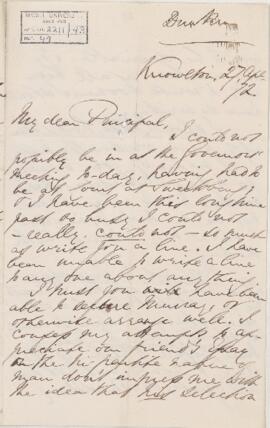 Knowlton, 27 Apl
/72
My dear Principal,
I could not
possibly be in at the Governors
meeting to-day, having had to
be at
& I have been this long time
past so busy I could not
– really, could not – so much
as write you a line. I have
been unable to write a line
to any one about any thing.
I trust you will have been
able to secure Murray or
otherwise arrange well. I
confess my attempts to ap-
preciate our friend's
on the
man don't impress me with
the idea that his selection